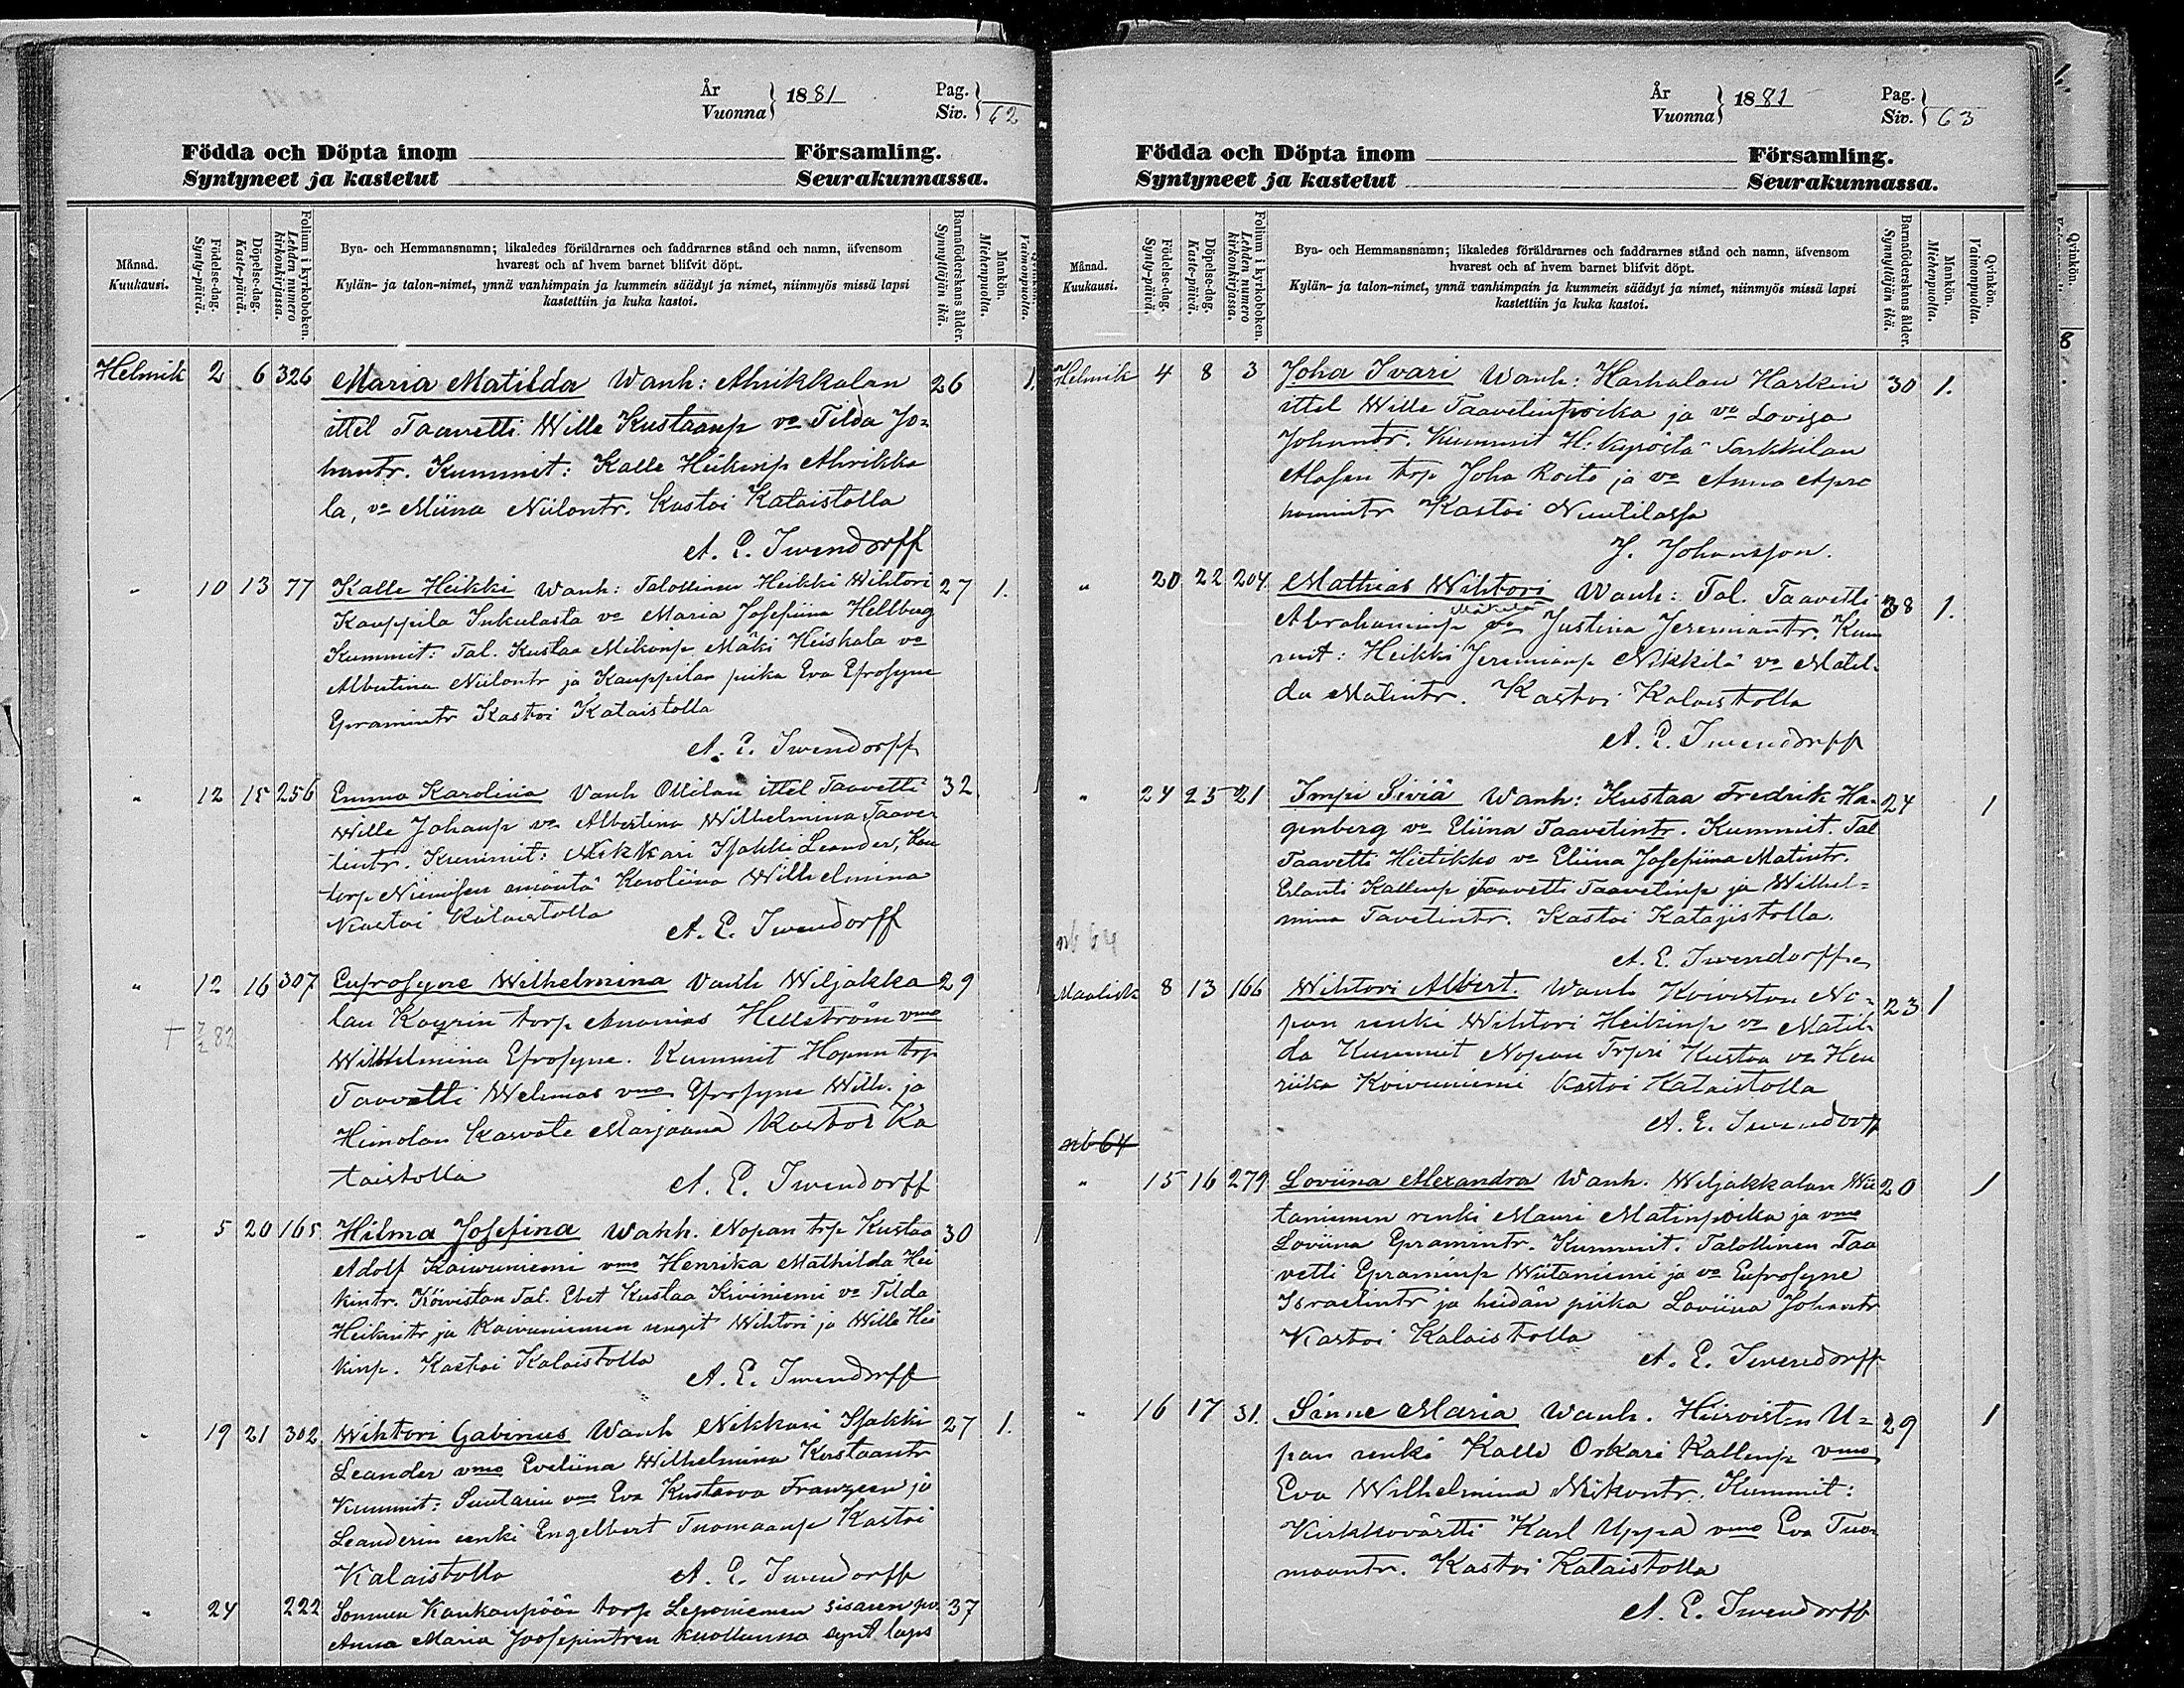 År
Vuonna } 1881
Pag.
Siv. } 62
Födda och Döpta inom Församling.
Syntyneet ja kastetut Seurakunnassa.
Månad.
Kuukausi.
Födelse-dag.
Synty-päivä.
Döpelse-dag.
Kaste-päivä.
Folium i kyrkoboken.
Lehden numero
kirkonkirjassa.
Bya- och Hemmansnamn; likaledes föräldrarnes och faddrarnes stånd och namn, äfvensom
hvarest och af hvem barnet blifvit döpt.
Kylän- ja talon-nimet, ynnä vanhimpain ja kummein säädyt ja nimet, niinmyös missä lapsi
kastettiin ja kuka kastoi.
Barnaföderskans ålder.
Synnyttäjän ikä.
Mankön.
Miehenpuolta.
Qvinkön.
Vaimonpuolta.
Helmik 2 6 326 Maria Matilda Wanh: Ahrikkalan 26 1.
ittel Taavetti Wille Kustaanp vo Tilda Jo=
hantr. Kummit: Kalle Heikinp Ahrikka
la, vo Miina Niilontr. Kastoi Kataistolla
A. E. Iwendorff
" 10 13 77 Kalle Heikki Wanh: Talollinen Heikki Wihtori 27 1.
Kauppila Inkulasta vo Maria Josefiina Hellberg
Kummit: Tal. Kustaa Mikonp Mäki Heiskala vo
Albertina Niilontr ja Kauppilan piika Eva Efrosyne
Epramintr Kastoi Kataistolla
A. E. Iwendorff
" 12 15 256 Emma Karolina Vanh Ottilan ittel Taavetti 32
Wille Johanp vo Albertina Wilhelmina Taave
tintr. Kummit: Nikkari Isakki Leander,
torp Niemisen emäntä Karoliina Wilhelmina
Kastoi Kataistolla
A. E. Iwendorff
" 12 16 307 Eufrosyne Wilhelmina Vanh Wiljakka 29
lan Koyrin torp Ananias Hellström vmo
† 7/2 82
Wilhelmina Efrosyne. Kummit Hopun trp
Taavetti Welmas vmo Efrosyne Wilh. ja
Heinolan Marjaana Kastoi Ka
taistolla
A. E. Iwendorff
" 5 20 165 Hilma Josefina Wanh. Nopan trp Kustaa 30
Adolf Koivuniemi vmo Henrika Mathilda Hei
kintr. Koiviston Tal. Kustaa Kiviniemi vo Tilda
Heikintr ja Koivuniemen rengit Wihtori ja Wille Hei
kinp. Kastoi Kataistolla
A. E. Iwendorff
" 19 21 302 Wihtori Gabinus Wanh Nikkari Isakki 27 1.
Leander vmo Eveliina Wilhelmina Kustaantr
Kummit: Suutarin vmo Eva Kustaava Franzeen ja
Leanderin renki Engelbert Tuomaanp Kastoi
Kataistolla
A. E. Iwendorff
" 24 222 Sommen Kankaanpään torp Leponiemen sisaren po 37
Anna Maria Joosepintren kuolluna synt laps
År
Vuonna } 1881
Pag.
Siv. } 63
Födda och Döpta inom Församling.
Syntyneet ja kastetut Seurakunnassa.
Månad.
Kuukausi.
Födelse-dag.
Synty-päivä.
Döpelse-dag.
Kaste-päivä.
Folium i kyrkoboken.
Lehden numero
kirkonkirjassa.
Bya- och Hemmansnamn; likaledes föräldrarnes och faddrarnes stånd och namn, äfvensom
hvarest och af hvem barnet blifvit döpt.
Kylän- ja talon-nimet, ynnä vanhimpain ja kummein säädyt ja nimet, niinmyös missä lapsi
kastettiin ja kuka kastoi.
Barnaföderskans ålder.
Synnyttäjän ikä.
Mankön.
Miehenpuolta.
Qvinkön.
Vaimonpuolta.
Helmik 4 8 3 Joha Ivari Wanh: Harhalan Harkin 30 1.
ittel Wille Taavetinpoika ja vo Lovisa
Johantr. Kummit H: kyröstä Sarkkilan
Alasen torp Joha Koito ja vo Anna Apra
hamintr Kastoi Nuutilassa
J. Johansson.
" 20 22 204 Mathias Wihtori Wanh: Tal. Taavetti 38 1.
Mäkelä
Abrahaminp vo Justina Jeremiantr. Kum
mit: Heikki Jeremianp Nikkilä vo Matil-
da Matintr. Kastoi Kataistolla
A. E. Iwendorff
" 24 25 21 Impi Siviä Wanh: Kustaa Fredrik Ha- 24 1
genberg vo Eliina Taavetintr. Kummit. Tal
Taavetti Hietikko vo Eliina Josefiina Matintr.
Erlanti Kallenp Taavetti Taavetinp ja Wilhel=
mina Tavetintr. Kastoi Katajistolla.
nb 64
A. E. Iwendorff
Maalisk 8 13 166 Wihtori Albert. Wanh Koiviston No= 23 1
pan renki Wihtori Heikinp vo Matil-
da Kummit Nopan Trpri Kustaa vo Hen
riika Koivuniemi Kastoi Kataistolla
A. E. Iwendorff
nb 64
" 15 16 279 Loviina Alexandra Wanh. Wiljakkalan Wii 20 1
taniemen renki Mauri Matinpoika ja vmo
Loviina Epramintr. Kummit. Talollinen Taa
vetti Epraminp Wiitaniemi ja vo Eufrosyne
Israelintr ja heidän piika Loviina Johantr
Kastoi Kataistolla
A. E. Iwendorff
" 16 17 31. Sanne Maria Wanh. Hiirviston U= 29 1
pan renki Kalle Orkari Kallenp vmo
Eva Wilhelmina Mikontr. Kummit:
Kirkkovärtti Karl Uppa vmo Eva Tuo-
maantr. Kastoi Kataistolla
A. E. Iwendorff
Qvinkön.
8